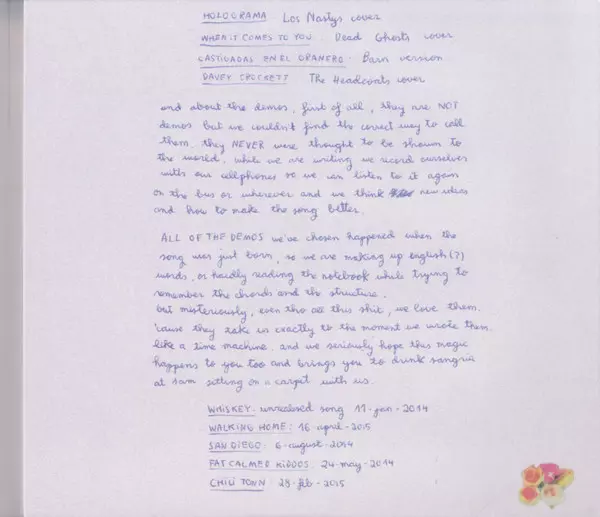 HOLOGRAMA: Los Nastys cover
WHEN IT COMES TO YOU: Dead Ghosts cover
CASTIGADAS EN EL GRANERO: Barn version
DAVEY CROCKETT: The Headcoats cover
and about the demos, first of all, they are NOT
demos but we couldn't find the correct way to call
them. they NEVER were thought to be shown to
the world, while we are writing we record ourselves
with our cellphones so we can listen to it again
on the bus or wherever and we think new ideas
and how to make the song better.
ALL OF THE DEMOS we've chosen happened when the
song was just born, so we are making up english(?)
words, or hardly reading the notebook while trying to
remember the chords and the structure.
but misteriously, even tho all this shit, we love them.
'cause they take us exactly to the moment we wrote them.
like a time machine. and we seriously hope this magic
happens to you too and brings you to drink sangria
at 1am sitting on a carpet with us.
WHISKEY: unreleased song 11-jan-2014
WALKING HOME: 16-april-2015
SAN DIEGO: 6-august-2014
FAT CALMED KIDDOS: 24-may-2014
CHILI TOWN: 28-feb-2015